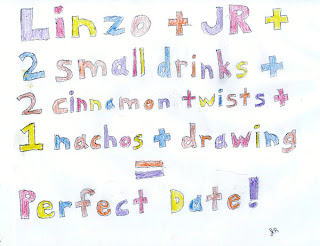 Linzo + JR +
2 small drinks +
2 cinnamon twists +
1 nachos + drawing
=
Perfect Date!
JR